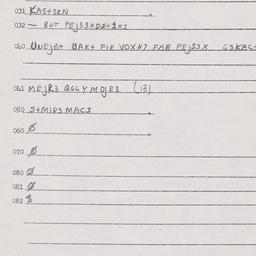 031 KAS+3RN
032 — BUT PEJS3XD3+2H3
040 UNEJB+ BAK+ FIR VOXH7 FAR PEJS3X
041 MEJR3 QGLY MOJR3 (13)
050 S+MIP3 MAC3
060 Ø
070 Ø
080 Ø
081 Ø
082 Ø